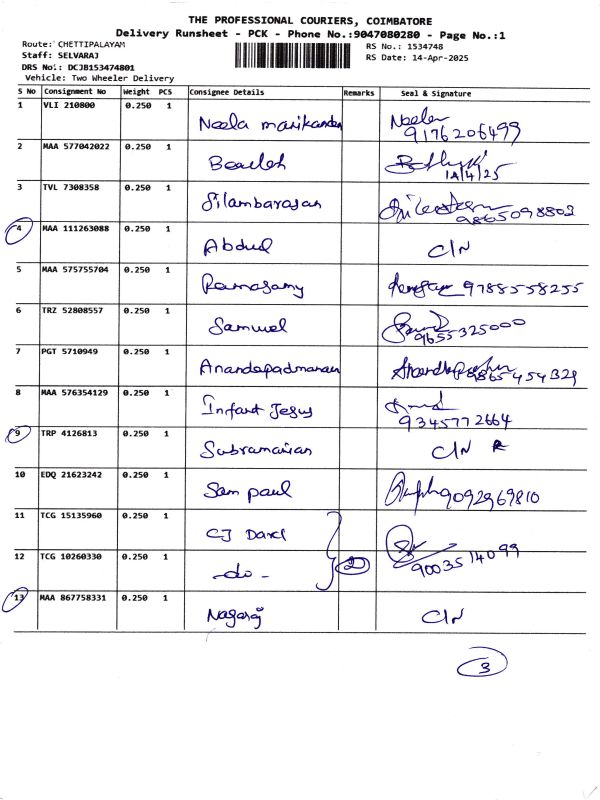 THE PROFESSIONAL COURIERS, COIMBATORE
Delivery Runsheet - PCK - Phone No.:9047080280 - Page No.:1
Route: CHETTIPALAYAM RS No.: 1534748
Staff: SELVARAJ RS Date: 14-Apr-2025
DRS No: DCJB153474801
Vehicle: Two Wheeler Delivery
S No Consignment No Weight PCS Consignee Details Remarks Seal & Signature
1 VLI 210800 0.250 1
Neela manikandan Neela
9176206499
2 MAA 577042022 0.250 1
14/4/25
3 TVL 7308358 0.250 1
Silambarasan 9865098802
4 MAA 111263088 0.250 1
Abdul C/N
5 MAA 575755704 0.250 1
Ramasamy 9788558255
6 TRZ 52808557 0.250 1
Samuel 9655325000
7 PGT 5710949 0.250 1
Anandapadmanan 9865454329
8 MAA 576354129 0.250 1
Infant Jesus
9345772664
9 TRP 4126813 0.250 1
Subramanian C/N
10 EDQ 21623242 0.250 1
Sam paul 9092969810
11 TCG 15135960 0.250 1
CJ
12 TCG 10260330 0.250 1
- do - 2 9003514099
13 MAA 867758331 0.250 1
Nagaraj C/N
3